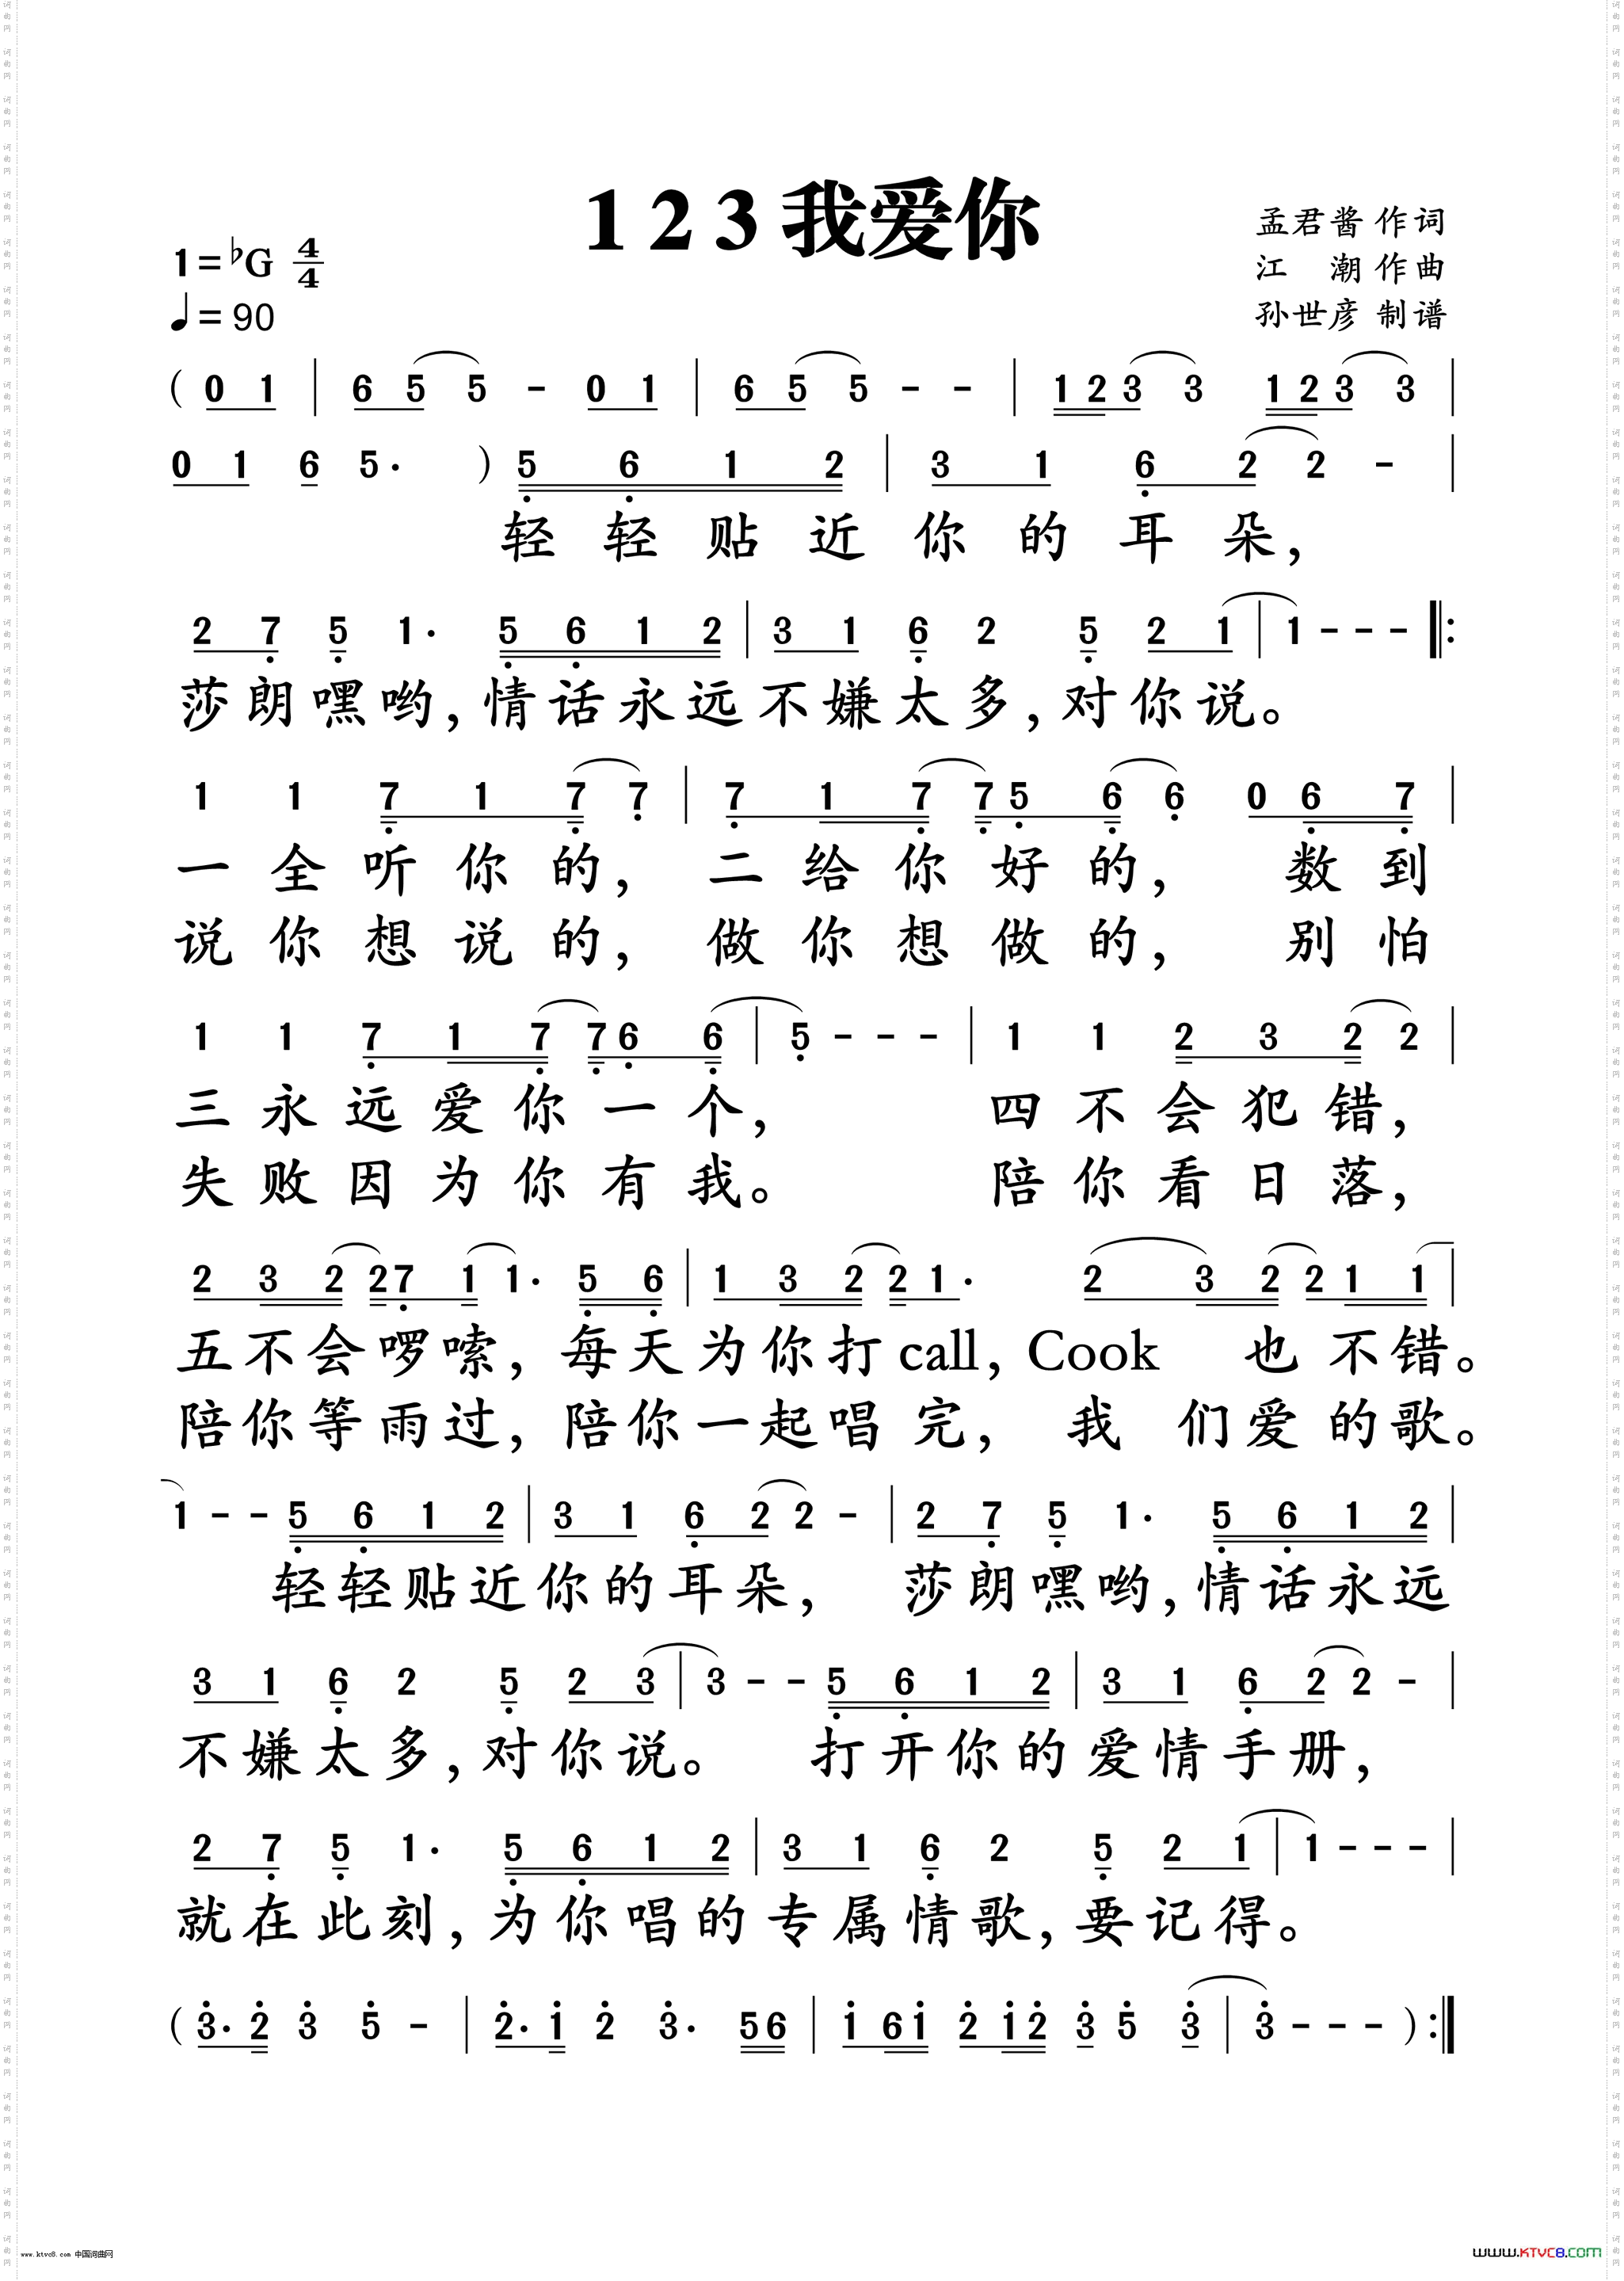 123我爱你
孟君酱 作词
1=♭G 4/4
江 潮 作曲
♩=90
孙世彦 制谱
( 0 1 | 6 5 5 - 0 1 | 6 5 5 - - | 1 2 3 3 1 2 3 3 |
0 1 6 5· ) 5 6 1 2 | 3 1 6 2 2 - |
轻轻贴近你的耳朵,
2 7 5 1· 5 6 1 2 | 3 1 6 2 5 2 1 | 1 - - - ‖:
莎朗嘿哟,情话永远不嫌太多,对你说。
1 1 7 1 7 7 | 7 1 7 7 5 6 6 0 6 7 |
一全听你的,二给你好的,数到
说你想说的,做你想做的,别怕
1 1 7 1 7 7 6 6 | 5 - - - | 1 1 2 3 2 2 |
三永远爱你一个,四不会犯错,
失败因为你有我。陪你看日落,
2 3 2 2 7 1 1· 5 6 | 1 3 2 2 1· 2 3 2 2 1 1 |
五不会啰嗦,每天为你打call,Cook 也不错。
陪你等雨过,陪你一起唱完,我们爱的歌。
1 - - 5 6 1 2 | 3 1 6 2 2 - | 2 7 5 1· 5 6 1 2 |
轻轻贴近你的耳朵,莎朗嘿哟,情话永远
3 1 6 2 5 2 3 | 3 - - 5 6 1 2 | 3 1 6 2 2 - |
不嫌太多,对你说。打开你的爱情手册,
2 7 5 1· 5 6 1 2 | 3 1 6 2 5 2 1 | 1 - - - |
就在此刻,为你唱的专属情歌,要记得。
( 3· 2 3 5 - | 2· 1 2 3· 5 6 | 1 6 1 2 1 2 3 5 3 | 3 - - - ) :‖
www.ktvc8.com 中国词曲网
WWW.KTVC8.COM